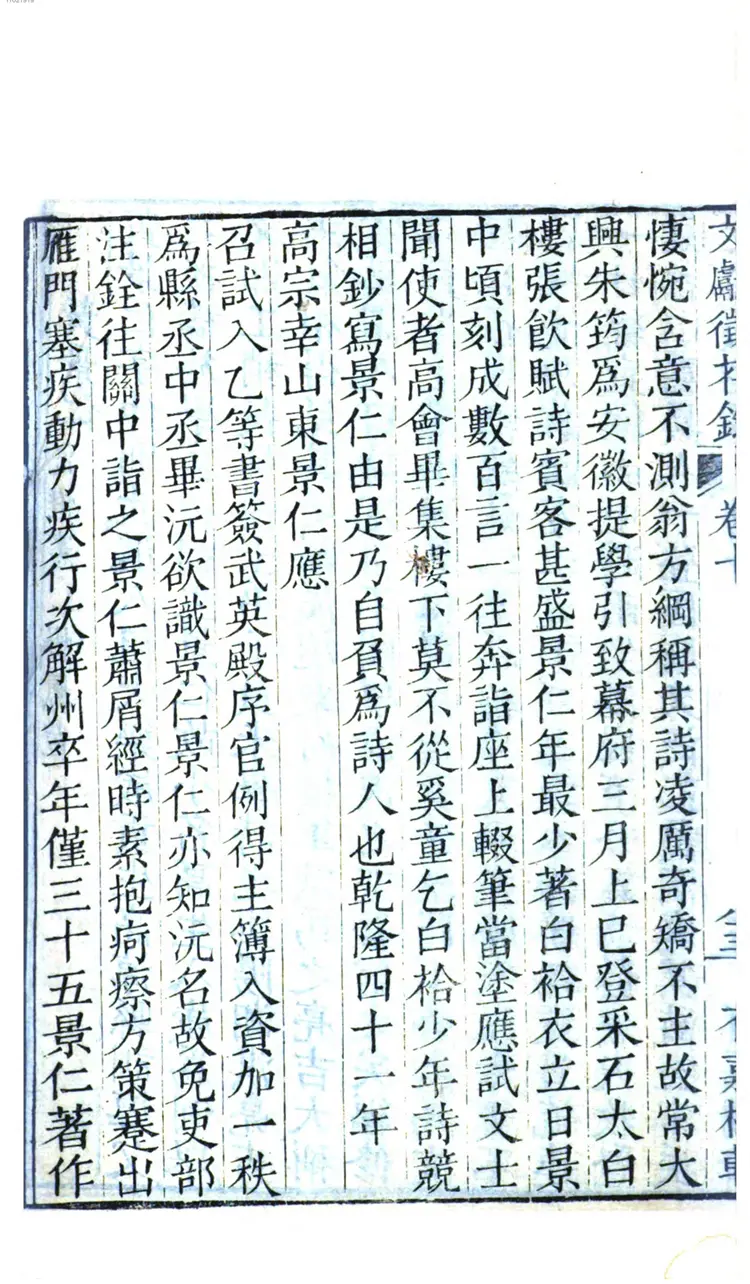 文獻徵存錄 卷十
悽惋含意不測翁方綱稱其詩凌厲奇矯不主故常大
興朱筠爲安徽提學引致幕府三月上巳登采石太白
樓張飮賦詩賓客甚盛景仁年最少著白袷衣立日景
中頃刻成數百言一往奔詣座上輟筆當塗應試文士
聞使者高會畢集樓下莫不從奚童乞白袷少年詩競
相鈔寫景仁由是乃自負爲詩人也乾隆四十一年
高宗幸山東景仁應
召試入乙等書簽武英殿序官例得主簿入資加一秩
爲縣丞中丞畢沅欲識景仁景仁亦知沅名故免吏部
注銓往關中詣之景仁蕭屑經時素抱疴瘵方策蹇出
雁門塞疾動力疾行次解州卒年僅三十五景仁著作